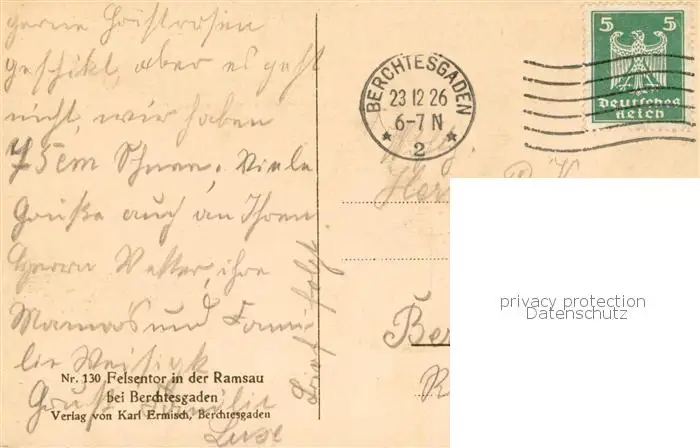 gerne Christrosen
geschikt, aber es geht
nicht, wir haben
75cm Schnee. Viele
Grüße auch an Ihren
Herrn Vetter, ihre
Mamas und Fami-
lie
Grüßt Familie
Brief folgt
Nr. 130 Felsentor in der Ramsau
bei Berchtesgaden
Verlag von Karl Ermisch, Berchtesgaden
BERCHTESGADEN
23 12 26
6-7 N
* 2 *
5 5
Deutsches
Reich
privacy protection
Datenschutz